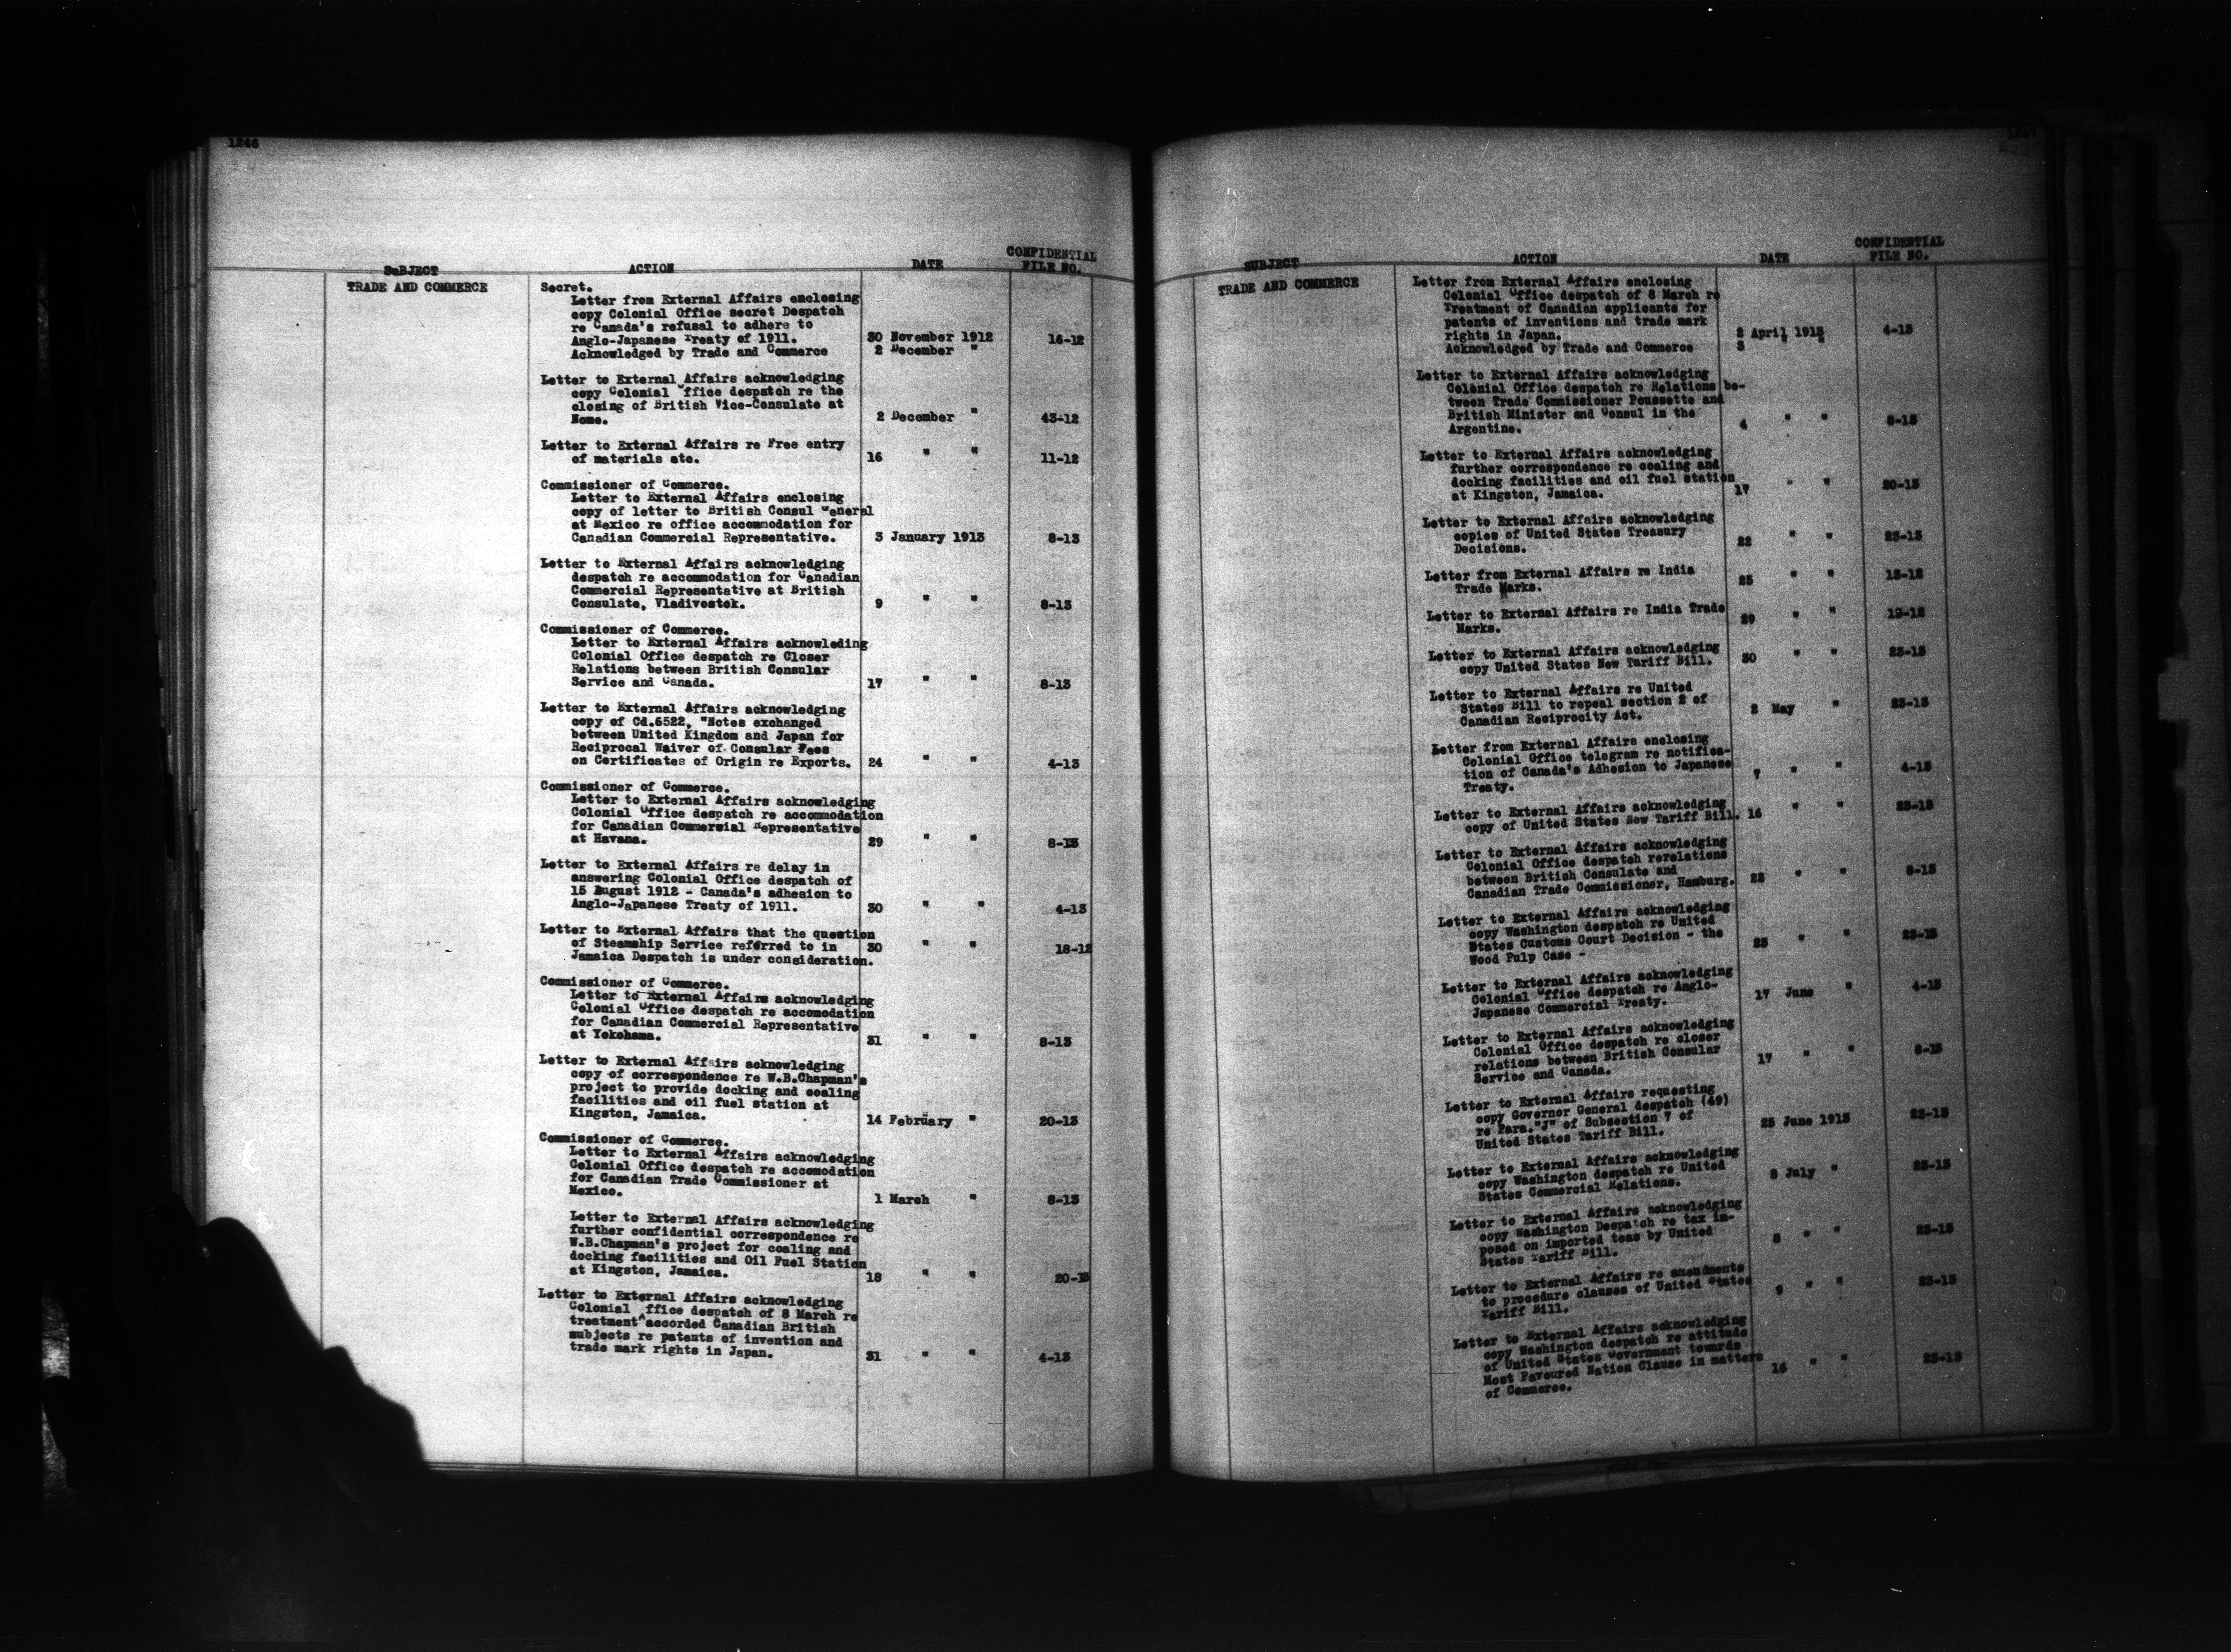 1246
SuBJECT ACTION DATE CONFIDENTIAL FILE NO.
TRADE AND COMMERCE
Secret.
Letter from External Affairs enclosing
copy Colonial Office secret Despatch
re Canada's refusal to adhere to
Anglo-Japanese Treaty of 1911. 30 November 1912 16-12
Acknowledged by Trade and Commerce 2 December "
Letter to External Affairs acknowledging
copy Colonial Office despatch re the
closing of British Vice-Consulate at
Nome. 2 December " 43-12
Letter to External Affairs re Free entry
of materials etc. 16 " " 11-12
Commissioner of Commerce.
Letter to External Affairs enclosing
copy of letter to British Consul General
at Mexico re office accommodation for
Canadian Commercial Representative. 3 January 1913 8-13
Letter to External Affairs acknowledging
despatch re accommodation for Canadian
Commercial Representative at British
Consulate, Vladivostok. 9 " " 8-13
Commissioner of Commerce.
Letter to External Affairs acknowleding
Colonial Office despatch re Closer
Relations between British Consular
Service and Canada. 17 " " 8-13
Letter to External Affairs acknowledging
copy of Cd.6522, "Notes exchanged
between United Kingdom and Japan for
Reciprocal Waiver of Consular Fees
on Certificates of Origin re Exports. 24 " " 4-13
Commissioner of Commerce.
Letter to External Affairs acknowledging
Colonial Office despatch re accommodation
for Canadian Commercial Representative
at Havana. 29 " " 8-13
Letter to External Affairs re delay in
answering Colonial Office despatch of
15 August 1912 - Canada's adhesion to
Anglo-Japanese Treaty of 1911. 30 " " 4-13
Letter to External Affairs that the question
of Steamship Service referred to in 30 " " 18-12
Jamaica Despatch is under consideration.
Commissioner of Commerce.
Letter to External Affairs acknowledging
Colonial Office despatch re accomodation
for Canadian Commercial Representative
at Yokohama. 31 " " 8-13
Letter to External Affairs acknowledging
copy of correspondence re W.B.Chapman's
project to provide docking and coaling
facilities and oil fuel station at
Kingston, Jamaica. 14 February " 20-13
Commissioner of Commerce.
Letter to External Affairs acknowledging
Colonial Office despatch re accomodation
for Canadian Trade Commissioner at
Mexico. 1 March " 8-13
Letter to External Affairs acknowledging
further confidential correspondence re
W.B.Chapman's project for coaling and
docking facilities and Oil Fuel Station
at Kingston, Jamaica. 18 " " 20-13
Letter to External Affairs acknowledging
Colonial ffice despatch of 8 March re
treatment^accorded Canadian British
subjects re patents of invention and
trade mark rights in Japan. 31 " " 4-13
SUBJECT ACTION DATE CONFIDENTIAL FILE NO.
TRADE AND COMMERCE
Letter from External Affairs enclosing
Colonial Office despatch of 8 March re
Treatment of Canadian applicants for
patents of inventions and trade mark
rights in Japan. 2 April 1913 4-13
Acknowledged by Trade and Commerce 3 " "
Letter to External Affairs acknowledging
Colonial Office despatch re Relations be-
tween Trade Commissioner Poussette and
British Minister and Consul in the
Argentine. 4 " " 8-13
Letter to External Affairs acknowledging
further correspondence re coaling and
docking facilities and oil fuel station
at Kingston, Jamaica. 17 " " 20-13
Letter to External Affairs acknowledging
copies of United States Treasury
Decisions. 22 " " 23-13
Letter from External Affairs re India
Trade Marks. 25 " " 13-12
Letter to External Affairs re India Trade
Marks. 29 " " 13-12
Letter to External Affairs acknowledging
copy United States New Tariff Bill. 30 " " 23-13
Letter to External Affairs re United
States Bill to repeal section 2 of
Canadian Reciprocity Act. 2 May " 23-13
Letter from External Affairs enclosing
Colonial Office telegram re notifica-
tion of Canada's Adhesion to Japanese
Treaty. 7 " " 4-13
Letter to External Affairs acknowledging
copy of United States New Tariff Bill. 16 " " 23-13
Letter to External Affairs acknowledging
Colonial Office despatch rerelations
between British Consulate and
Canadian Trade Commissioner, Hamburg. 22 " " 8-13
Letter to External Affairs acknowledging
copy Washington despatch re United
States Customs Court Decision - the
Wood Pulp Case - 23 " " 23-13
Letter to External Affairs acknowledging
Colonial Office despatch re Anglo-
Japanese Commercial Treaty. 17 June " 4-13
Letter to External Affairs acknowledging
Colonial Office despatch re closer
relations between British Consular
Service and Canada. 17 " " 8-13
Letter to External Affairs requesting
copy Governor General despatch (49)
re Para."J" of Subsection 7 of
United States Tariff Bill. 25 June 1913 23-13
Letter to External Affairs acknowledging
copy Washington despatch re United
States Commercial Relations. 8 July " 23-13
Letter to External Affairs acknowledging
copy Washington Despatch re tax im-
posed on imported teas by United
States Tariff Bill. 8 " " 23-13
Letter to External Affairs re amendments
to procedure clauses of United States
Tariff Bill. 9 " " 23-13
Letter to External Affairs acknowledging
copy Washington despatch re attitude
of United States Government towards
Most Favoured Nation Clause in matters
of Commerce. 16 " " 23-13